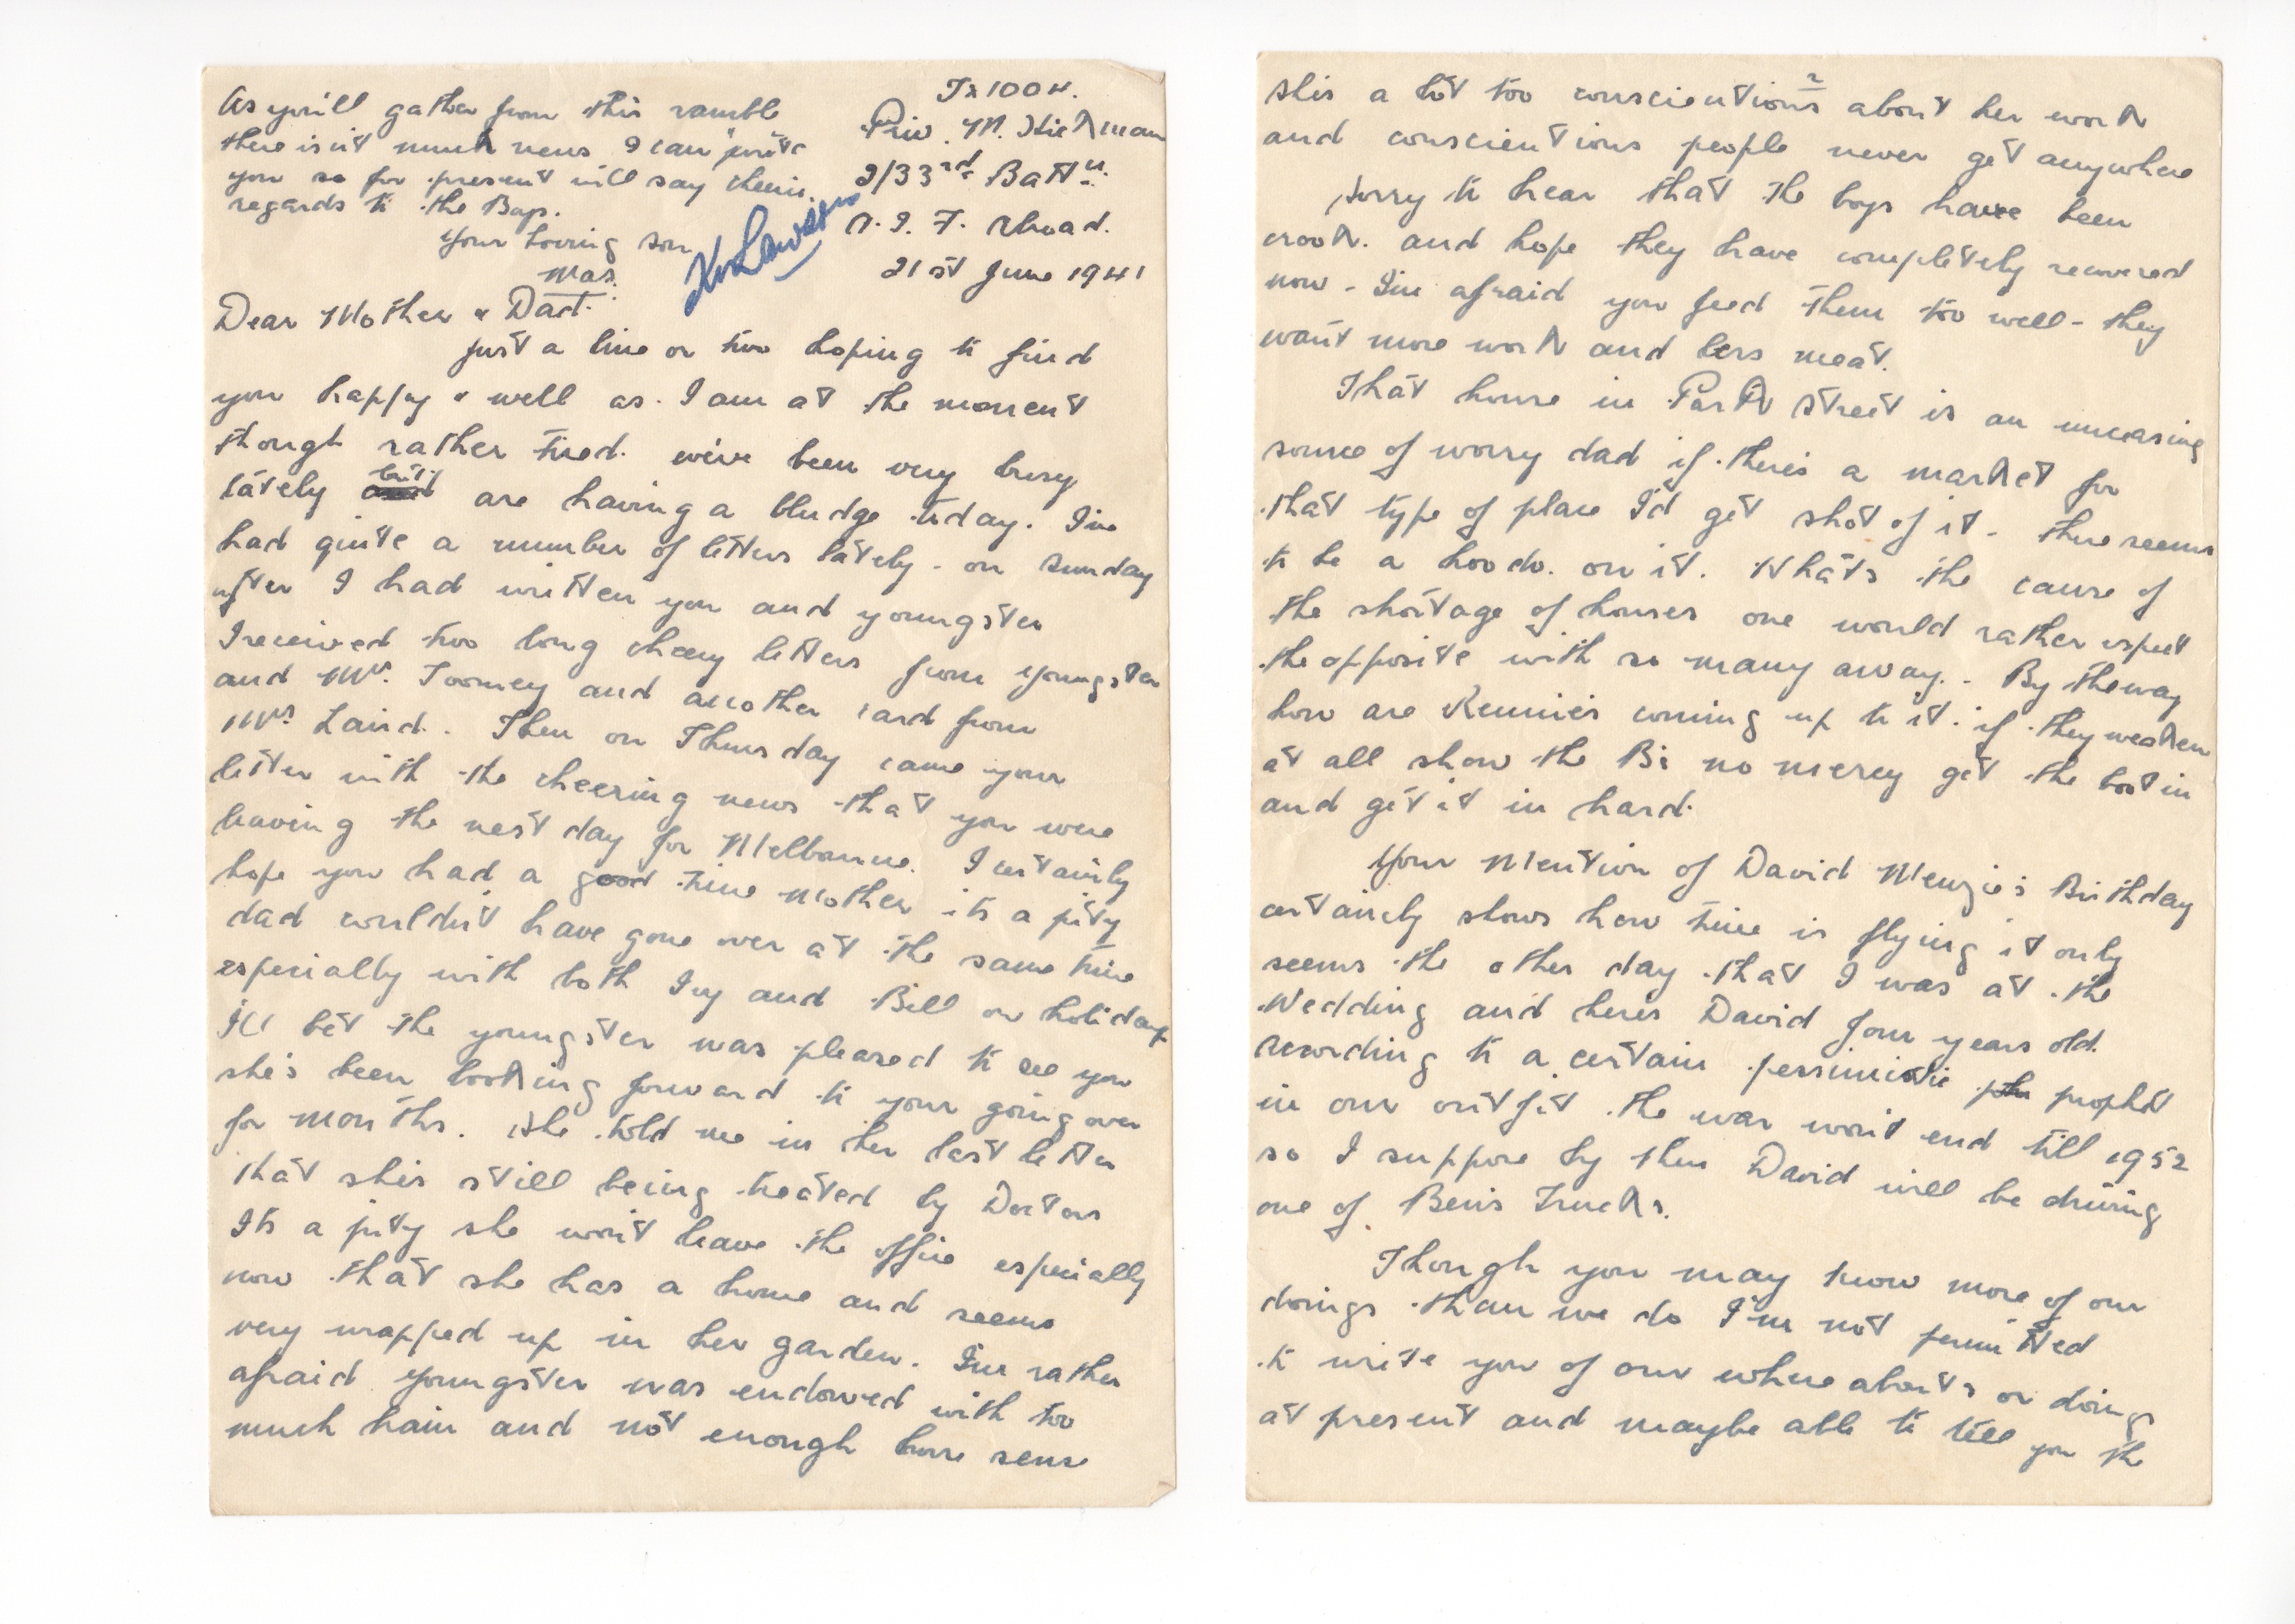 As you'll gather from this ramble
there isn't much news I can write
you so for present will say cheerio.
regards to the Boys.
Your Loving son
Mas.
Tx 1004.
Priv. M. Hickman
2/33rd Battn.
A.I.F. Abroad.
21st June 1941
Dear Mother & Dad.
Just a line or two hoping to find
you happy & well as I am at the moment
though rather tired. we've been very busy
lately but are having a bludge today. I've
had quite a number of letters lately - on Sunday
after I had written you and youngster
I received two long cheery letters from youngster
and Mrs. Toomey and another card from
Mrs Laird. Then on Thursday came your
letter with the cheering news that you were
leaving the next day for Melbourne. I certainly
hope you had a good time mother its a pity
dad wouldn't have gone over at the same time
especially with both Ivy and Bill on holidays
I'll bet the youngster was pleased to see you
she's been looking forward to your going over
for months. She told me in her last letter
that she's still being treated by Doctors
Its a pity she won't leave the office especially
now that she has a home and seems
very wrapped up in her garden. I'm rather
afraid youngster was endowed with too
much brain and not enough horse sense
she's a lot too conscientious ? about her work
and conscientious people never get anywhere
Sorry to hear that the boys have been
crook. and hope they have completely recovered
now - I'm afraid you feed them too well - they
want more work and less meat.
That house in Park Street is an unceasing
source of worry dad if there's a market for
that type of place I'd get shot of it - there seems
to be a hoodo on it. Whats the cause of
the shortage of houses one would rather expect
the opposite with so many away. - By the way
how are Rennies coming up to it. if they weaken
at all show the Bs no mercy get the boot in
and get it in hard.
Your Mention of David Menzie's Birthday
certainly shows how time is flying it only
seems the other day that I was at the
Wedding and here's David four years old.
According to a certain pessimistic prophet
in our outfit the war won't end till 1952
so I suppose by then David will be driving
one of Ben's Trucks.
Though you may know more of our
doings than we do I'm not permitted
to write you of our where abouts or doings
at present and maybe able to tell you the